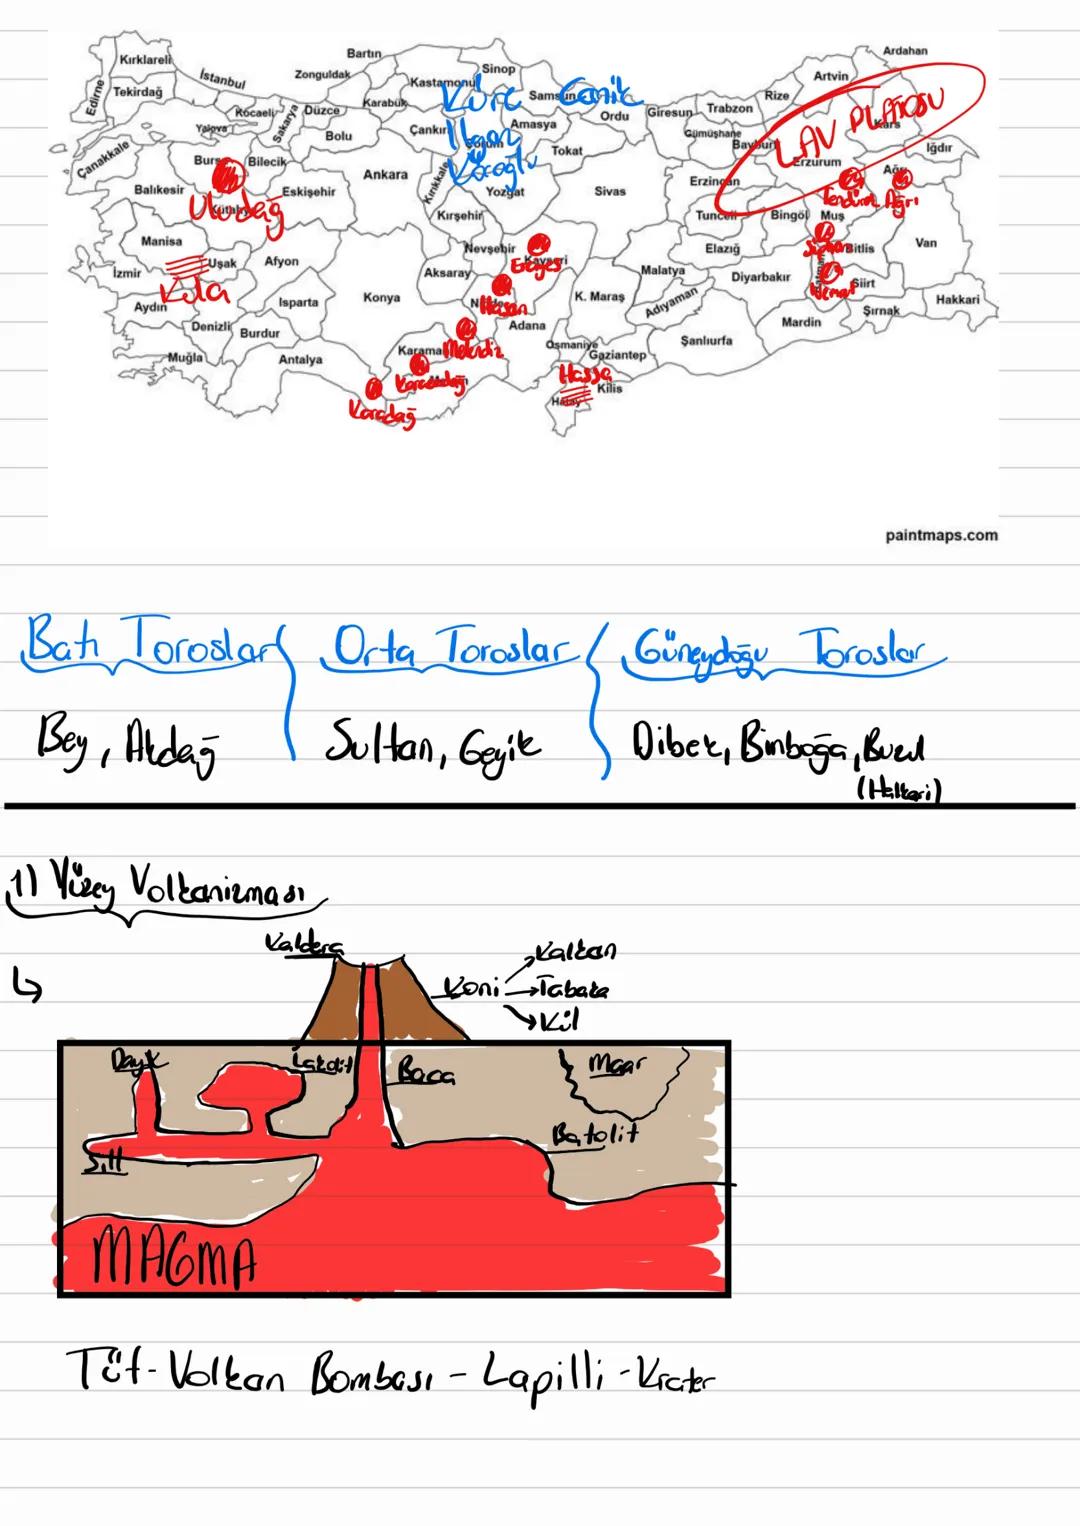 Ardahan
Bartın
Kırklareli
Sinop
İstanbul
Zonguldak
Artvin
Kastamonu
Edirne
Tekirdağ
Küre
Samsun
Canik
Rize
Karabük
Kocaeli
Düzce
Ordu
Giresun
Trabzon
LAV PLATOSU
Kars
Yalova
Sakarya
Bolu
Çankırı
Ilgaz
Çorum
Amasya
Gümüşhane
Bayburt
Çanakkale
Tokat
Erzurum
Iğdır
Bursa
Bilecik
Ankara
Kırıkkale
Köroğlu
Ağrı
Balıkesir
Eskişehir
Yozgat
Sivas
Erzincan
Tendürek
Ağrı
Uludağ
Kütahya
Kırşehir
Tunceli
Bingöl
Muş
Manisa
Nevşehir
Elazığ
Süphan
Bitlis
Van
Uşak
Afyon
Kayseri
Erciyes
İzmir
Aksaray
Malatya
Diyarbakır
Batman
Siirt
Kula
Nemrut
Aydın
Isparta
Konya
Niğde
Hasan
K. Maraş
Adıyaman
Şırnak
Hakkari
Denizli
Burdur
Adana
Mardin
Muğla
Antalya
Karaman
Melendiz
Osmaniye
Gaziantep
Şanlıurfa
Karacadağ
Hassa
Kilis
Karadağ
Hatay
paintmaps.com
Batı Toroslar
Orta Toroslar
Güneydoğu Toroslar
Bey, Akdağ
Sultan, Geyik
Dibek, Binboğa, Buzul
(Hakkari)
1) Yüzey Volkanizması
Kaldera
Kalkan
Koni
Tabaka
Kül
Dayk
Lakolit
Baca
Maar
Batolit
Sill
MAGMA
Tüf - Volkan Bombası - Lapilli - Krater